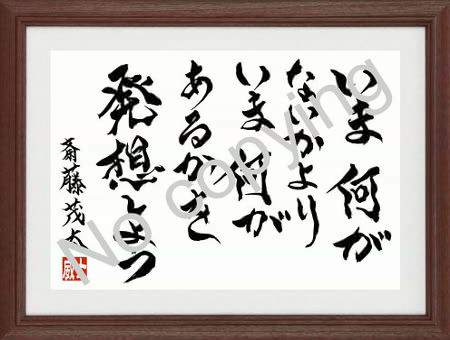 いま 何が
ないかより
いま 何が
あるか
発想しよう
斎藤茂太
No copying